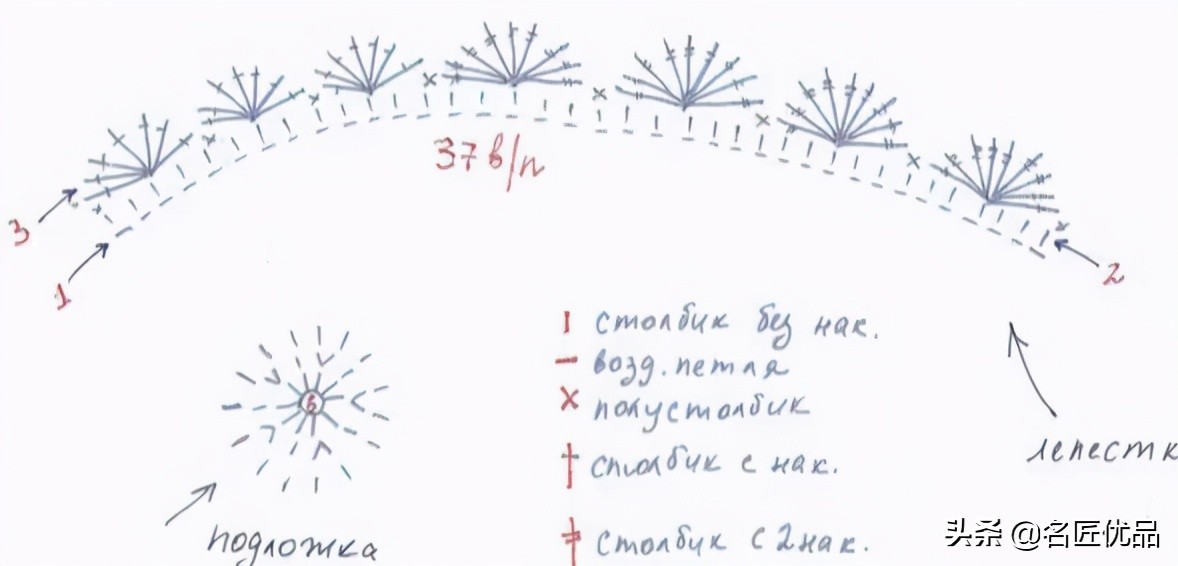 37 в/п
3
1
2
столбик без нак.
возд. петля
полустолбик
столбик с нак.
столбик с 2 нак.
лепестк
6
подложка
头条 @名匠优品